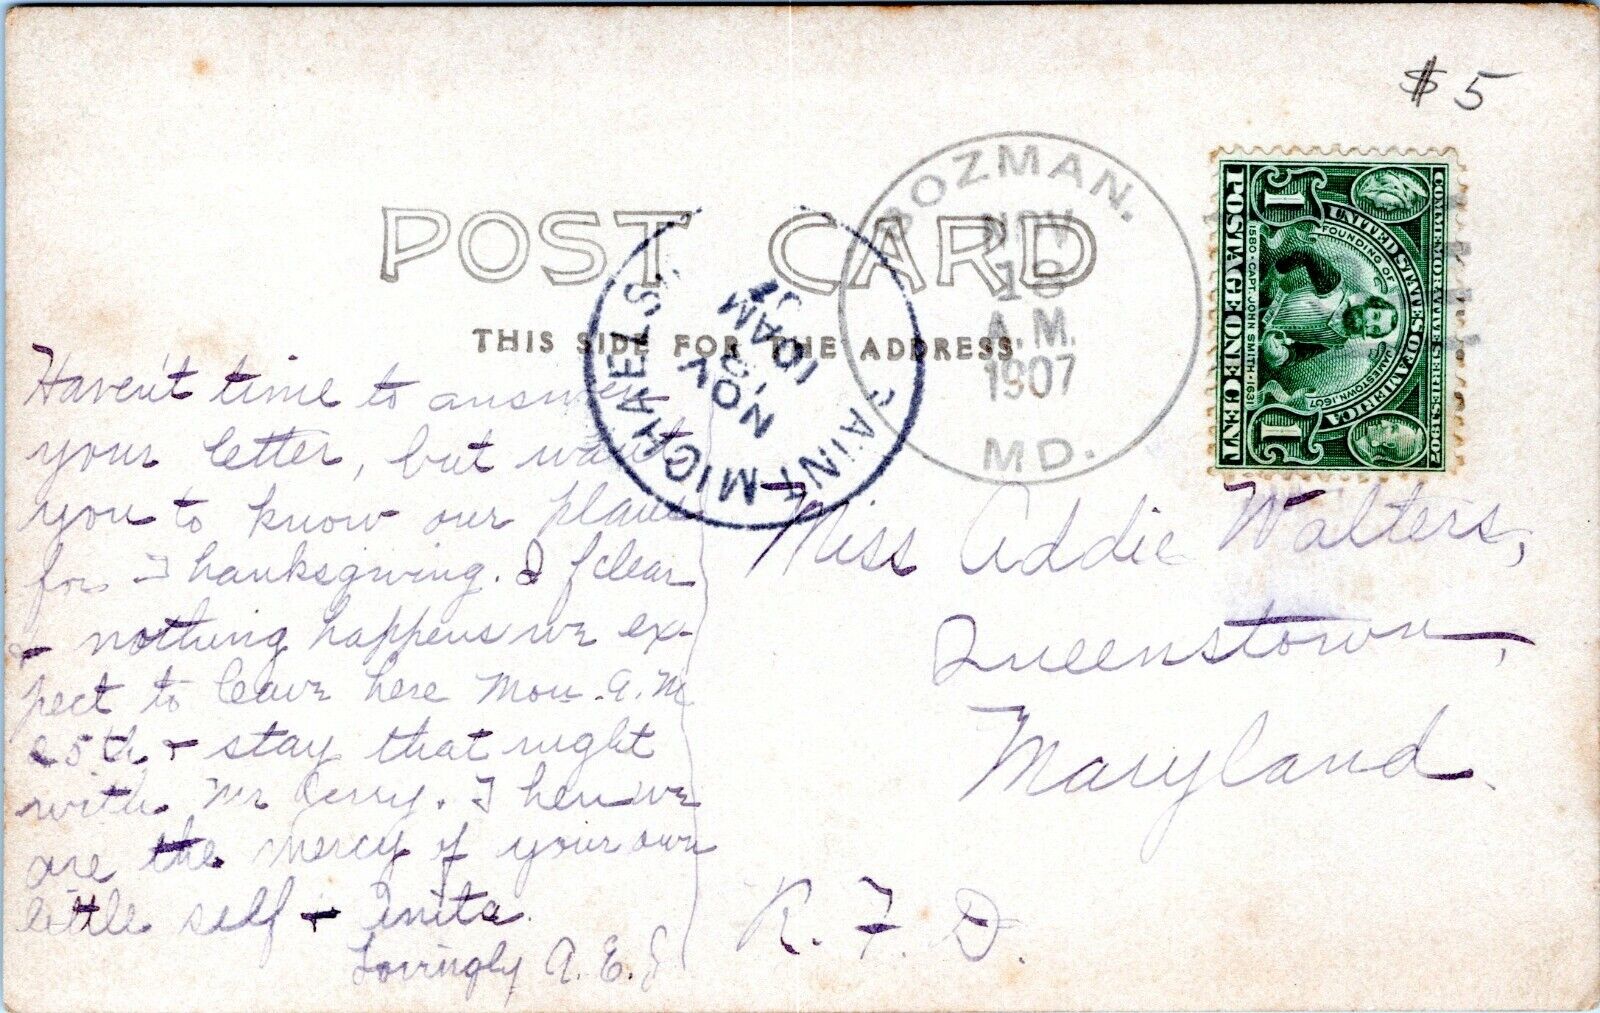 $5
POST CARD
THIS SIDE FOR THE ADDRESS
BOZMAN.
NOV
18
A.M.
1907
MD.
SAINT MICHAELS,
NOV
10AM
07
COMMEMORATIVE SERIES 1907
UNITED STATES OF AMERICA
FOUNDING OF JAMESTOWN, 1607
1580 - CAPT. JOHN SMITH - 1631
POSTAGE ONE CENT
1 1
Haven't time to answer
your letter, but want
you to know our plans
for Thanksgiving. If clear
+ nothing happens we ex-
pect to leave here Mon. A.M.
25th + stay that night
with Mr Perry. Then we
are the mercy of your own
little self + Anita.
Lovingly A. E. S
Miss Addie Walters,
Queenstown,
Maryland.
R. F. D.